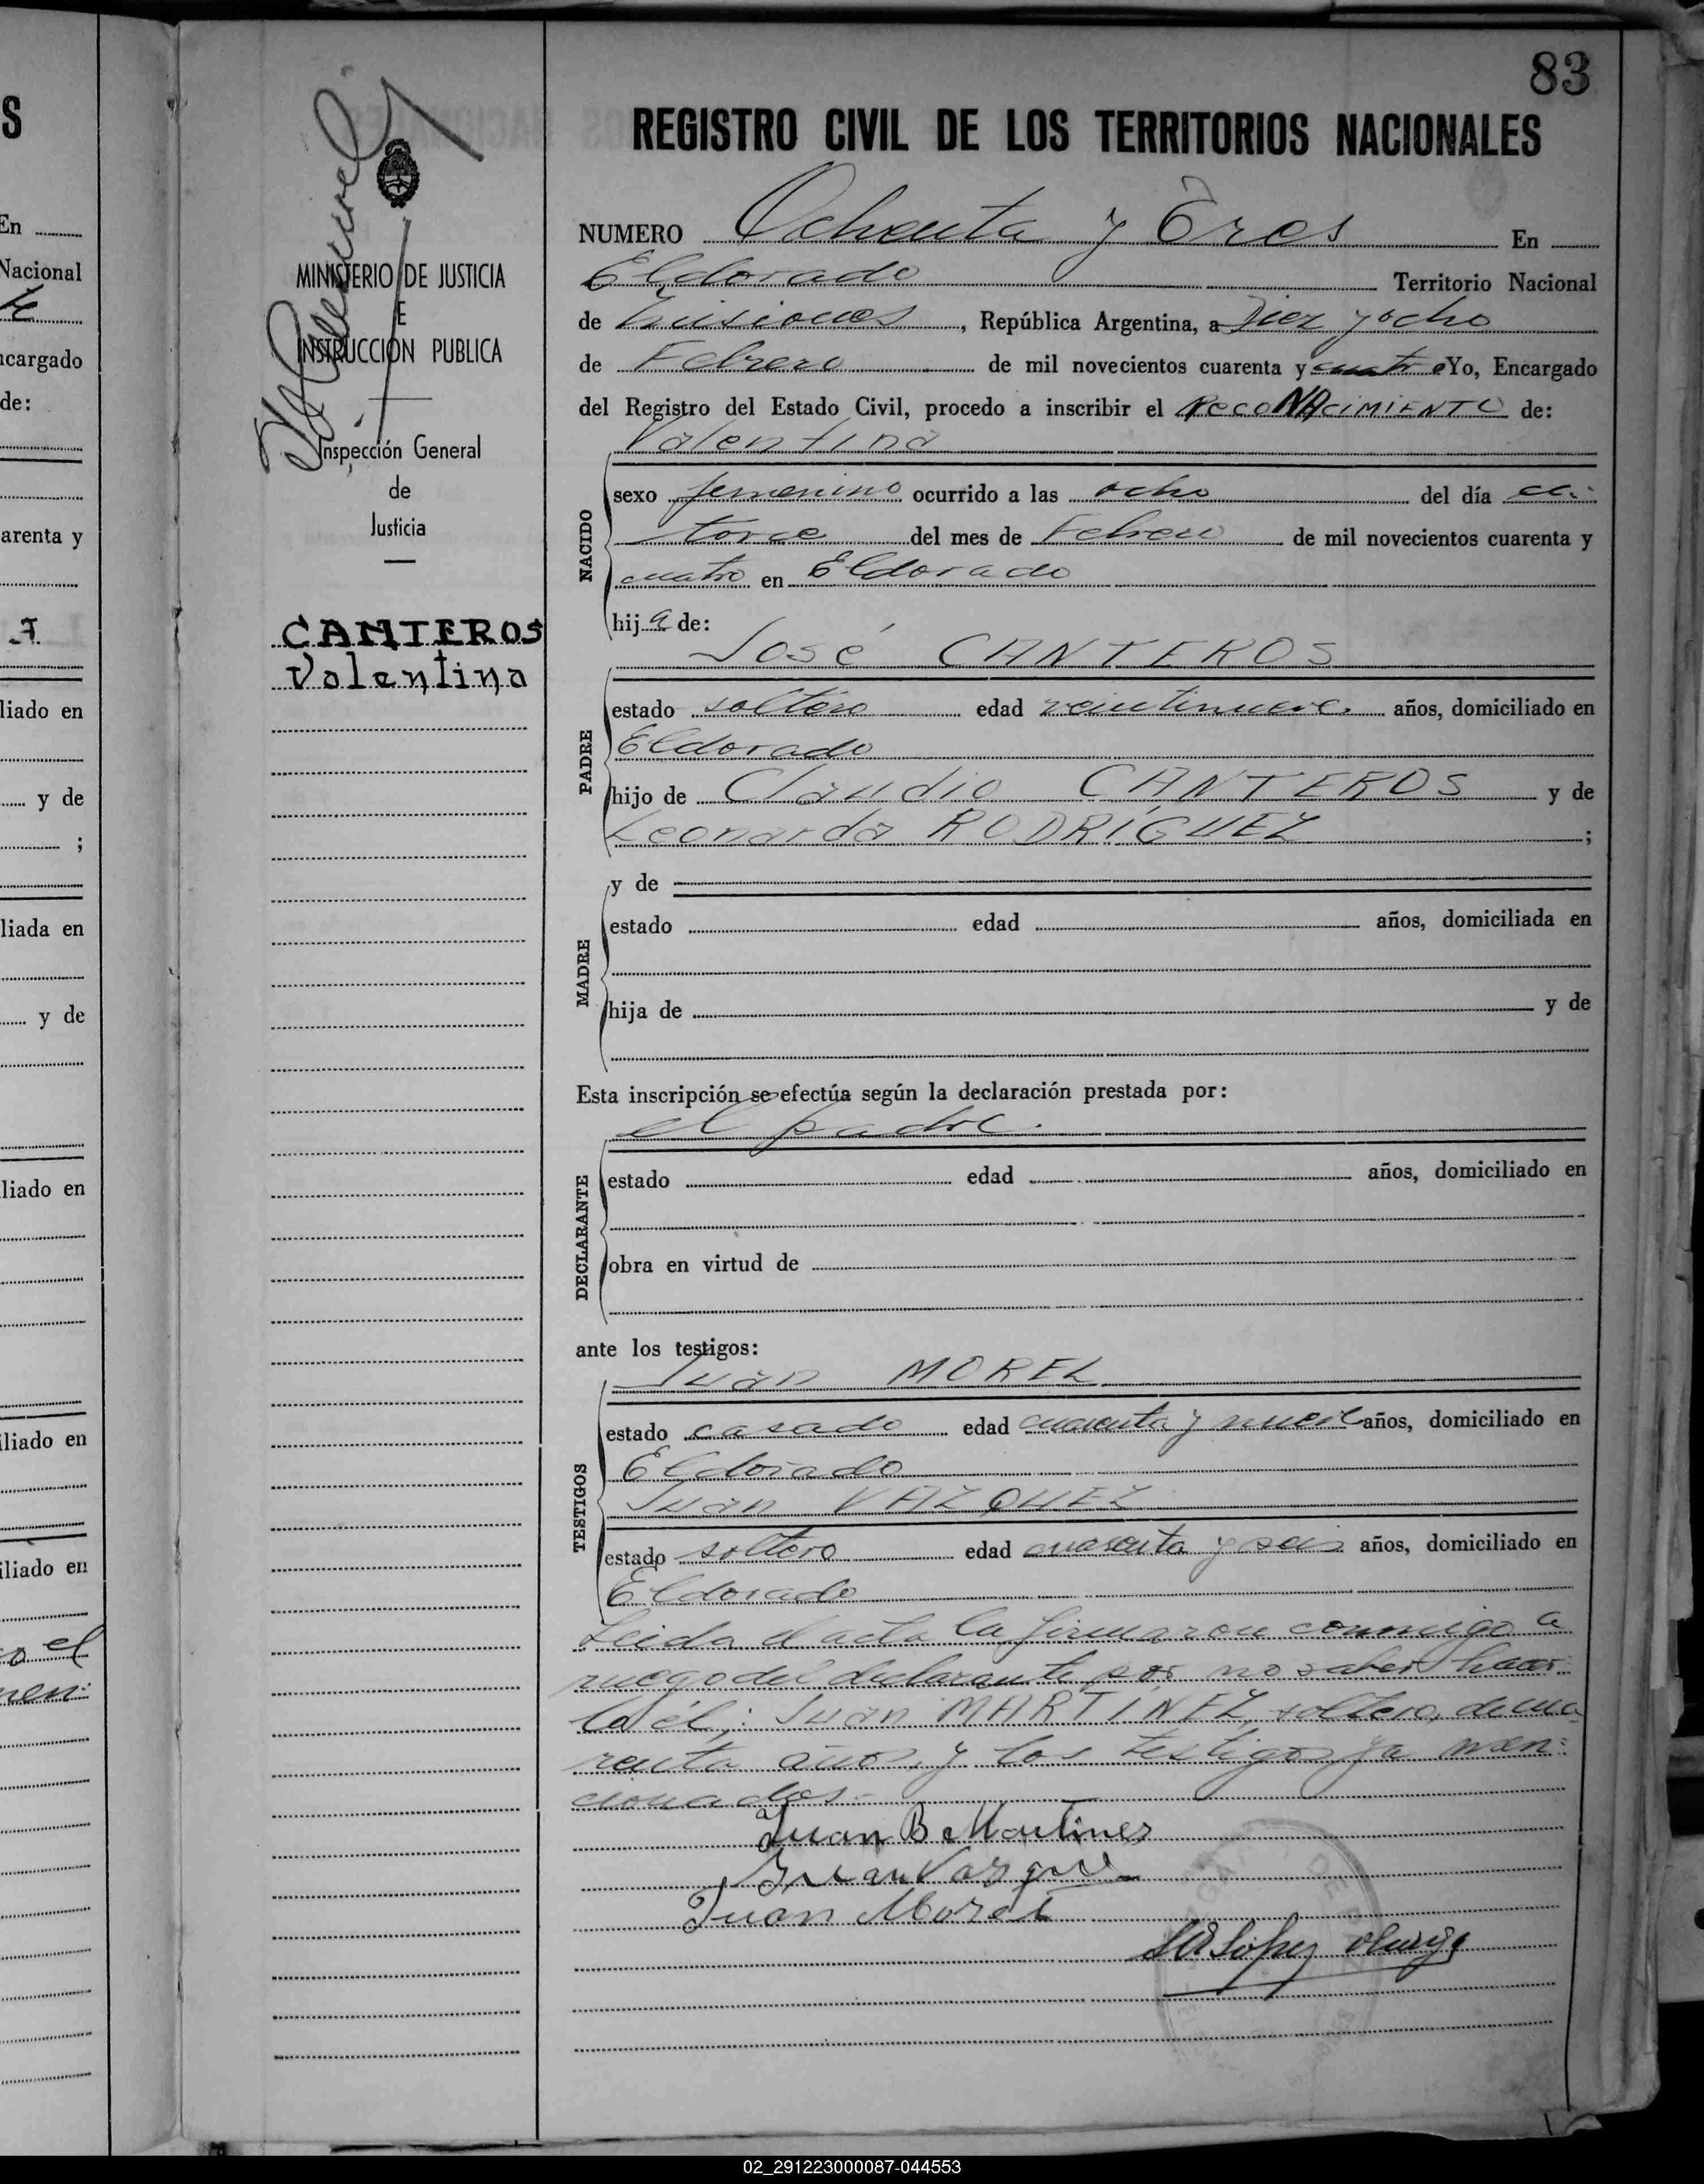 83
REGISTRO CIVIL DE LOS TERRITORIOS NACIONALES
NUMERO Ochenta y Tres En
Eldorado Territorio Nacional
de Misiones, República Argentina, a Diez y ocho
de Febrero de mil novecientos cuarenta y cuatro Yo, Encargado
del Registro del Estado Civil, procedo a inscribir el RecoNAciMIENTO de:
Valentina
NACIDO
sexo femenino ocurrido a las ocho del día ca-
torce del mes de Febrero de mil novecientos cuarenta y
cuatro en Eldorado
hija de:
José CANTEROS
PADRE
estado soltero edad veintinueve años, domiciliado en
Eldorado
hijo de Claudio CANTEROS y de
Leonarda RODRÍGUEZ ;
MADRE
y de
estado edad años, domiciliada en
hija de y de
Esta inscripción se efectúa según la declaración prestada por:
el padre.
DECLARANTE
estado edad años, domiciliado en
obra en virtud de
ante los testigos:
Juan MOREL
TESTIGOS
estado casado edad cuarenta y nueve años, domiciliado en
Eldorado
Juan VAZQUEZ
estado soltero edad cuarenta y seis años, domiciliado en
Eldorado
Leida el acta la firmaron conmigo a
ruego del declarante por no saber hacer-
lo él; Juan MARTINEZ, soltero, de cua
renta años, y los testigos ya men-
cionados.-
Juan B Martinez
Juan Vazquez
Juan Morel
MINISTERIO DE JUSTICIA
E
INSTRUCCIÓN PUBLICA
Inspección General
de
Justicia
CANTEROS
Valentina
S
En
Nacional
ncargado
de:
arenta y
liado en
y de
;
liada en
y de
liado en
iliado en
iliado en
o el
men-
02_291223000087-044553